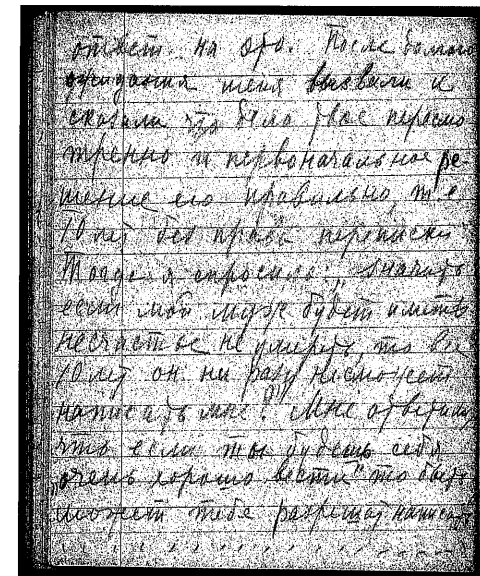 ответ на это. После долгого
ожидания меня вызвали и
сказали что дело двое пересмо
тренно и первоначальное ре
шение его правильно, т.е
10 лет без права переписки
Тогда я спросила: „значить
если мой муж будет иметь
несчастье не умереть, то все
10 лет он ни разу несможет
написать мне?" Мне ответили,
что если ты будешь себя
„очень хорошо вести" то быть
может тебе разрешат написать